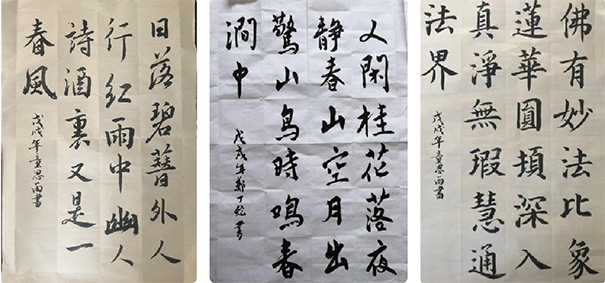 日落碧簪外人
行紅雨中幽人
詩酒裏又是一
春風
戊戌年童思雨書
人閑桂花落夜
静春山空月出
驚山鳥時鳴春
澗中
戊戌年鄭丁書
佛有妙法比象
蓮華圓頓深入
真淨無瑕慧通
法界
戊戌年童思雨書